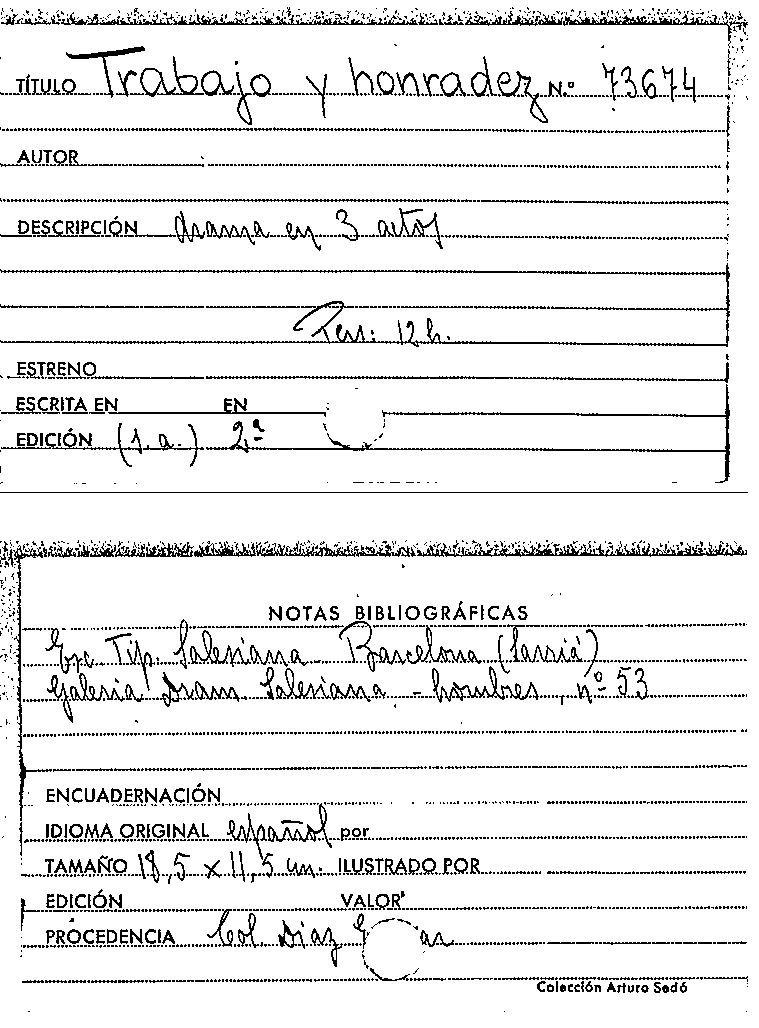 TÍTULO Trabajo y honradez N.º 73674
AUTOR
DESCRIPCIÓN drama en 3 actos
Pers: 12 h.
ESTRENO
ESCRITA EN EN
EDICIÓN (s.a.) 2ª
NOTAS BIBLIOGRÁFICAS
Esc. Tip. Salesiana - Barcelona (Sarriá)
Galeria Dram. Salesiana - hombres, nº 53
ENCUADERNACIÓN
IDIOMA ORIGINAL español por
TAMAÑO 18,5 x 11,5 cm. ILUSTRADO POR
EDICIÓN VALOR
PROCEDENCIA Col. Diaz
Colección Arturo Sedó